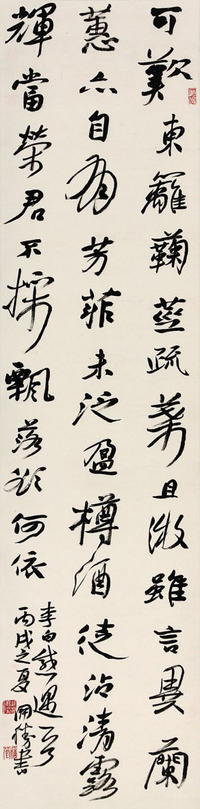 可歎東籬鞠莖疏葉且微雖言異蘭
蕙亦自有芳菲未泛盈樽酒徒沾清露
輝當榮君不採飄落欲何依
李白感遇
丙戌之夏開勝書